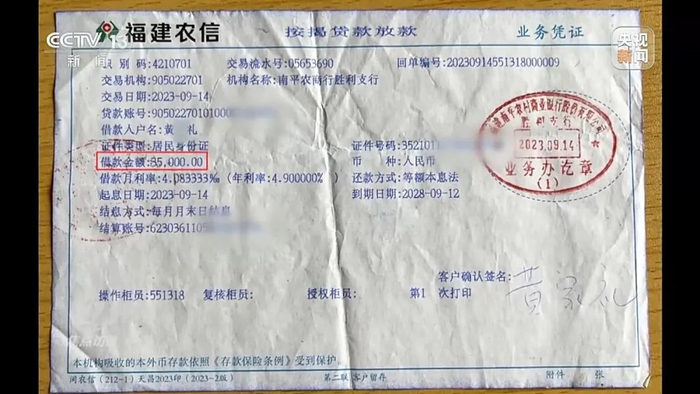 CCTV 13
新闻
福建农信
按揭贷款放款
业务凭证
央视新闻
识别码:4210701
交易流水号:05653690
回单编号:20230914551318000009
交易机构:905022701
机构名称:南平农商行胜利支行
交易日期:2023-09-14
贷款账号:9050227010100
借款人户名:黄 礼
证件类型:居民身份证
证件号码:3521011
借款金额:85,000.00
币 种:人民币
借款月利率:4.083333‰ (年利率:4.900000%)
还款方式:等额本息法
起息日期:2023-09-14
到期日期:2028-09-12
结息方式:每月月末日结息
结算账号:6230361105
2023.09.14
业务办讫章
(1)
客户确认签名:
操作柜员:551318
复核柜员:
授权柜员:
第1 次打印
本机构吸收的本外币存款依照《存款保险条例》受到保护。
闽农信(212-1)天昌2023印(2023-2版)
第二联 客户留存
附件 张